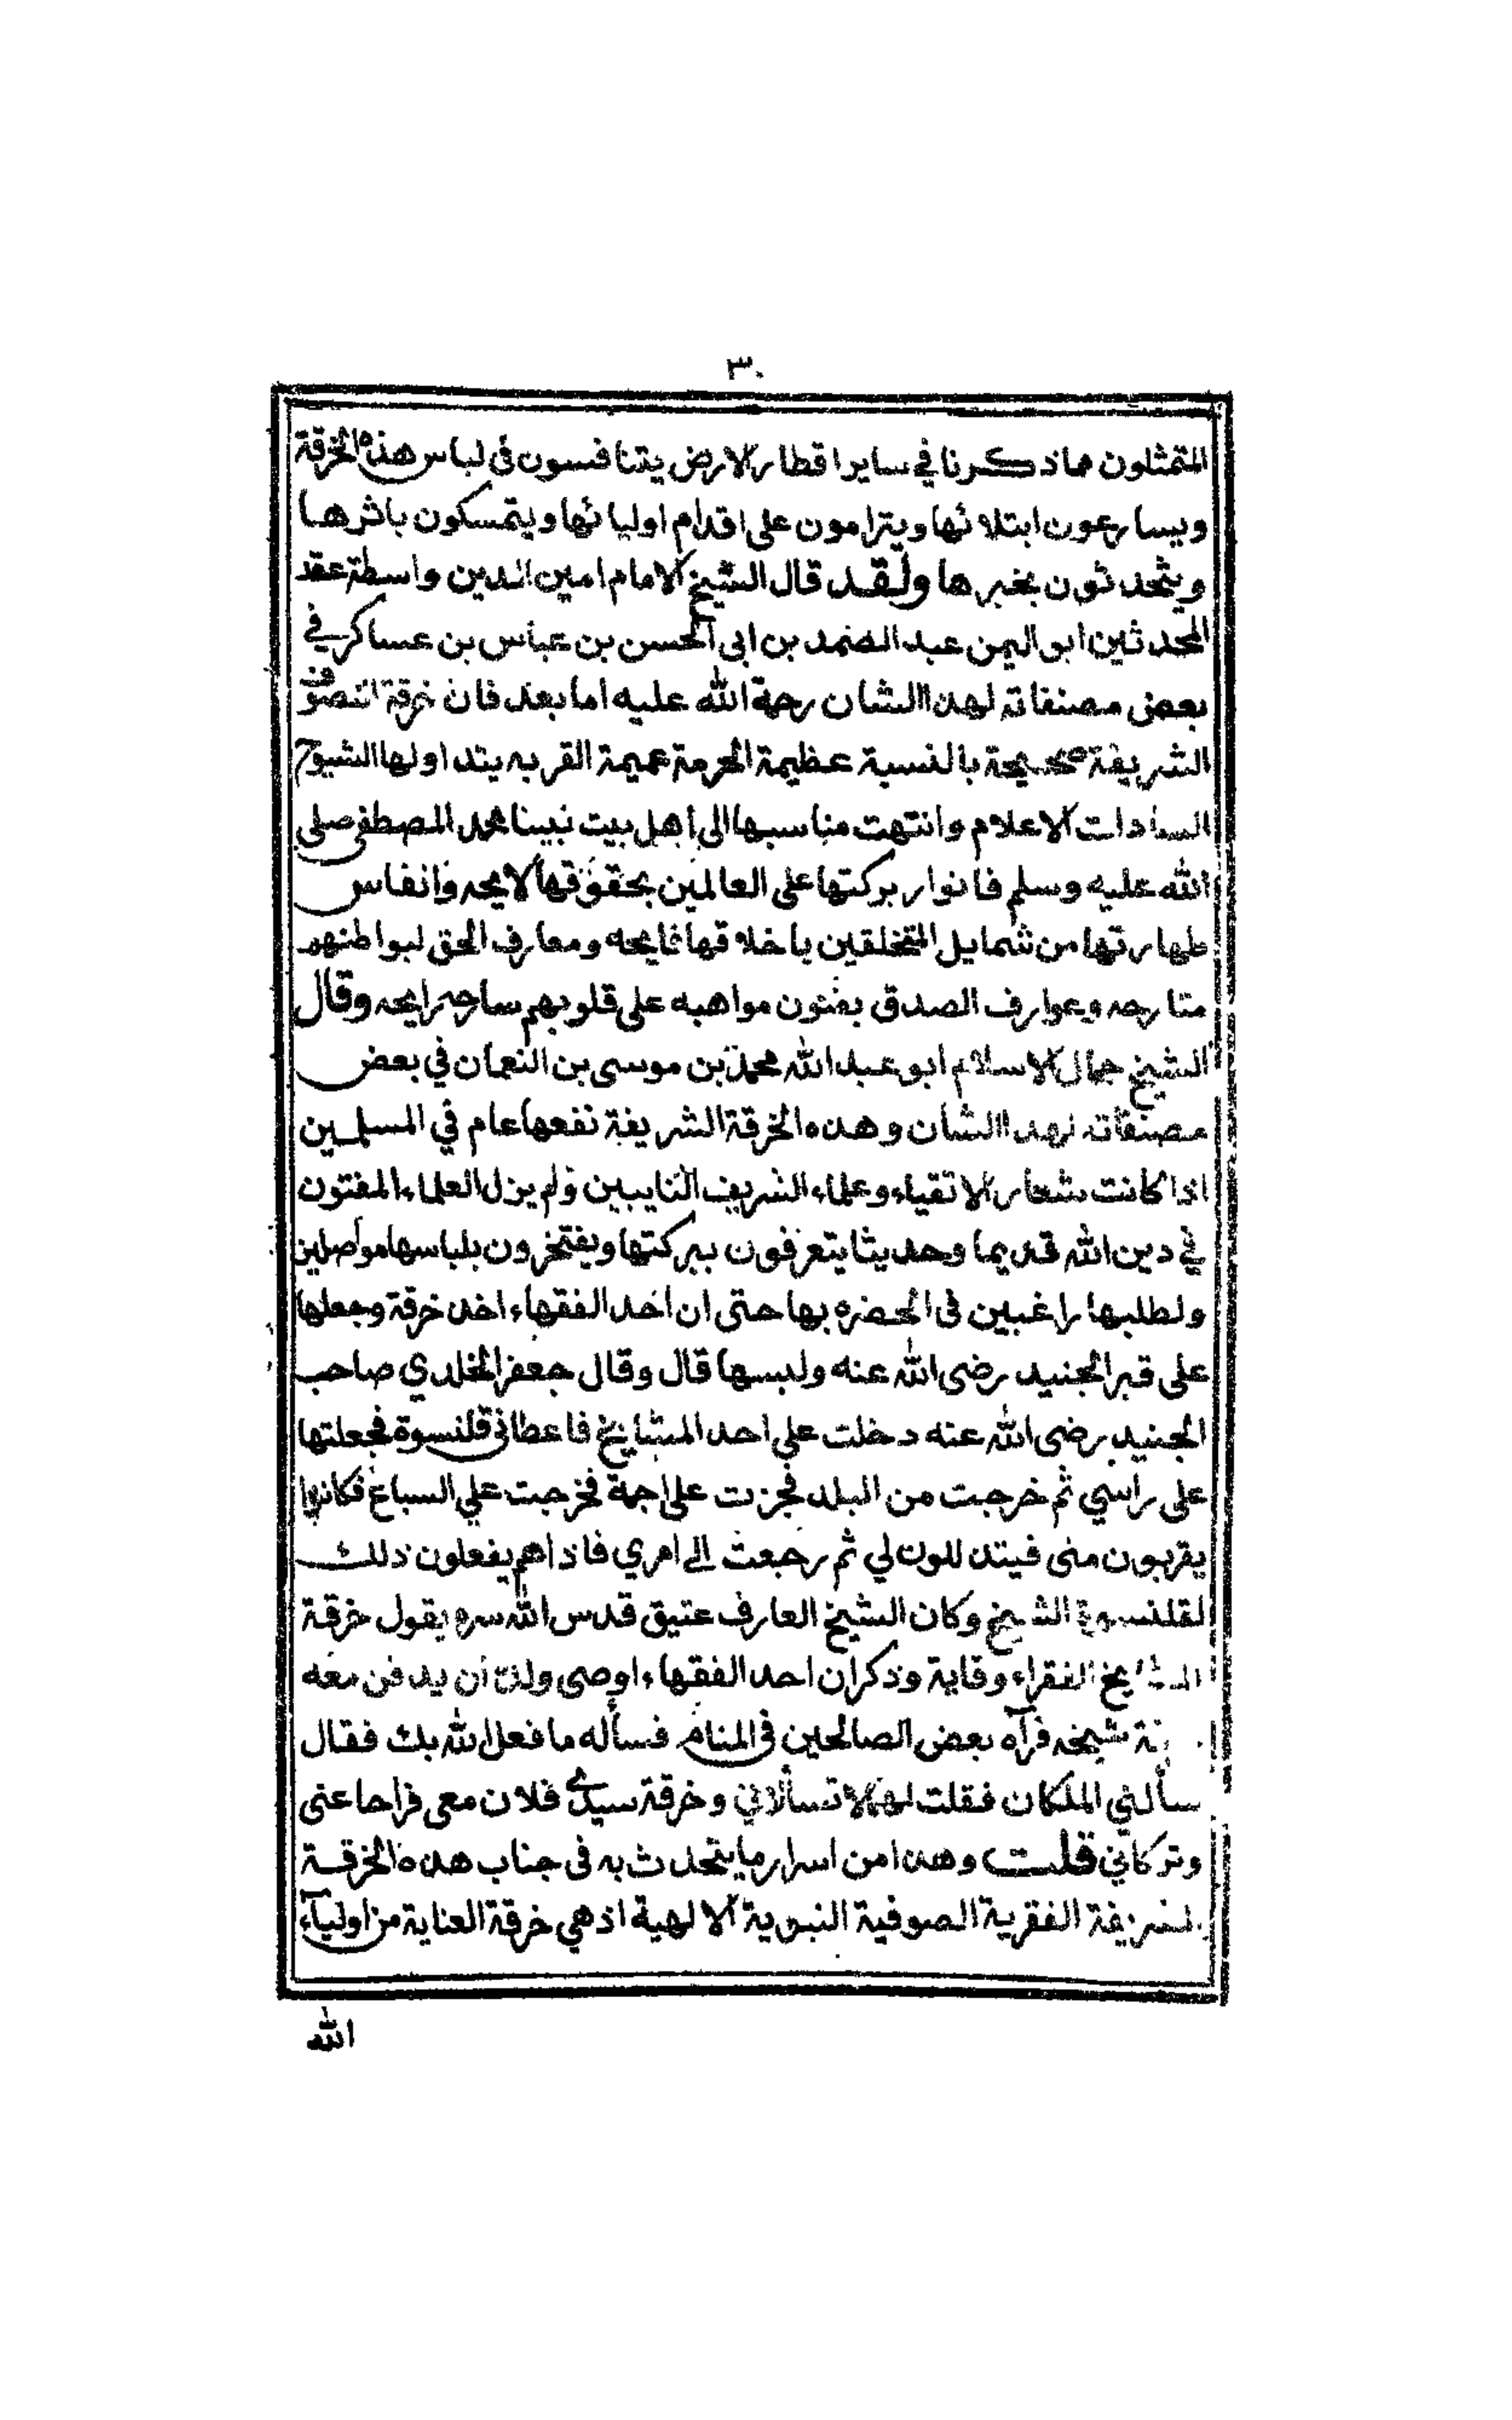 ٣٠
المتمثلون مما ذكرنا في ساير اقطار الارض يتنافسون في لباس هذه الخرقة
ويسارعون ابتلائها ويترامون على اقدام اوليائها ويتمسكون باثرها
ويتحدثون بخبرها ولقد قال الشيخ الامام امين الدين واسطة عقد
المحدثين ابو اليمن عبد الصمد بن ابى الحسن بن عباس بن عساكر في
بعض مصنفاته لهذا الشان رحمة الله عليه اما بعد فان خرقة التصوف
الشريفة صحيحة بالنسبة عظيمة الحرمة عميمة القربه يتداولها الشيوخ
السادات الاعلام وانتهت مناسبها الى اهل بيت نبينا محمد المصطفى صلى
الله عليه وسلم فانوار بركتها على العالمين بحقوقها لايحه وانفاس
طهارتها من شمايل المتخلقين باخلاقها فايحه ومعارف الحق لبواطنهم
متارجه وعوارف الصدق بفنون مواهبه على قلوبهم رايحه وقال
الشيخ جمال الاسلام ابو عبد الله محمد بن موسى بن النعمان في بعض
مصنفاته لهذا الشان وهذه الخرقة الشريفة نفعها عام في المسلمين
اذا كانت شعار الاتقياء وعلماء الشريف التايبين ولم يزل العلماء المفتون
في دين الله قديما وحديثا يتعرفون ببركتها ويفتخرون بلباسها مواصلين
ولطلبها راغبين فى الحضره بها حتى ان احد الفقهاء اخذ خرقة وجعلها
على قبر الجنيد رضى الله عنه ولبسها قال وقال جعفر الخلدي صاحب
الجنيد رضى الله عنه دخلت على احد المشايخ فاعطانى قلنسوة فجعلتها
على راسي ثم خرجت من البلد فجزت على اجمة فخرجت علي السباع فكانوا
يقربون منى فيتذللون لي ثم رجعت الى امري فاذا هم يفعلون ذلك
لقلنسوة الشيخ وكان الشيخ العارف عتيق قدس الله سره يقول خرقة
المشايخ الفقراء وقاية وذكر ان احد الفقهاء اوصى ولده ان يدفن معه
شيخه فرآه بعض الصالحين فى المنام فسأله ما فعل الله بك فقال
سألني الملكان فقلت لهما لا تسألاني وخرقة سيدي فلان معى فراحا عنى
وتركاني قلت وهذا من اسرار ما يتحدث به فى جناب هذه الخرقة
الشريفة الفقرية الصوفية النبوية الالهية اذ هي خرقة العناية من اولياء
الله